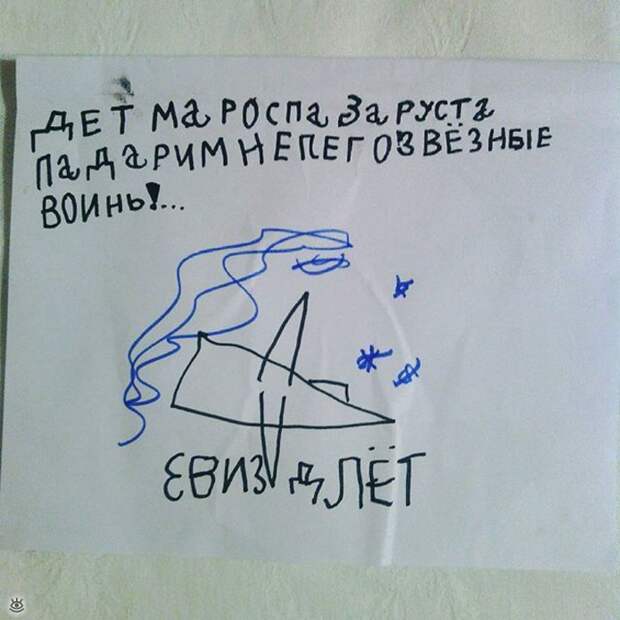 ДЕТ МаРОСПАЗАРУСТА
ПаДаРИМНЕПЕГОЗВЁЗНЫЕ
ВОИНЫ!...
ЕВИЗДЛЁТ